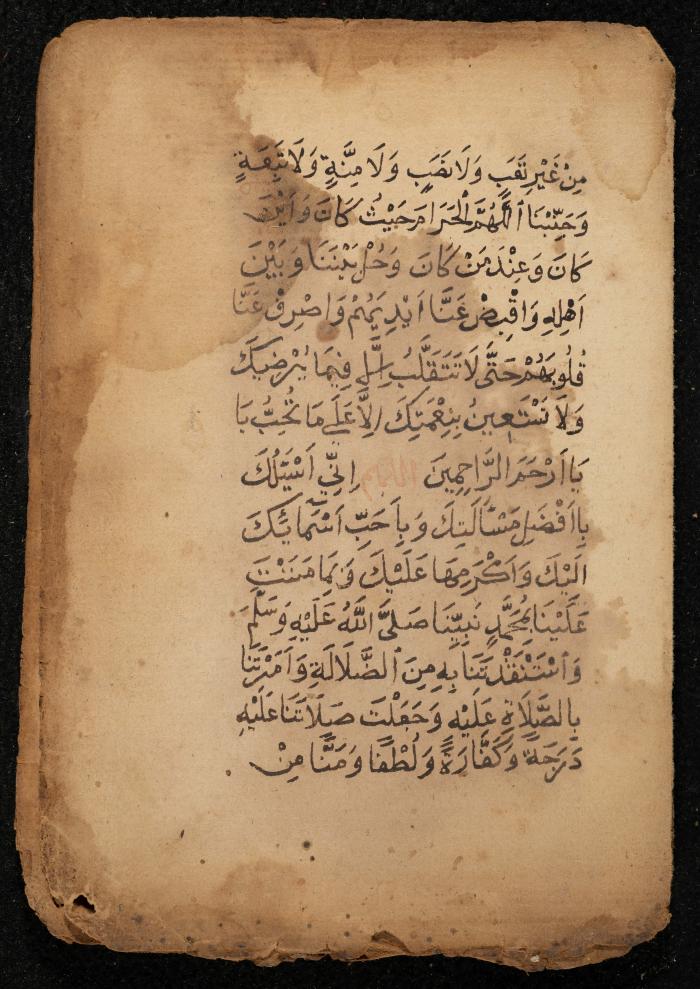 مِنْ غَيْرِ تَعَبٍ وَلَا نَصَبٍ وَلَا مِنَّةٍ وَلَا تَبِعَةٍ
وَجَنِّبْنَا اَللّٰهُمَّ الْحَرَامَ حَيْثُ كَانَ وَاَيْنَ
كَانَ وَعِنْدَ مَنْ كَانَ وَحُلْ بَيْنَنَا وَبَيْنَ
اَهْلِهِ وَاقْبِضْ عَنَّا اَيْدِيَهُمْ وَاصْرِفْ عَنَّا
قُلُوبَهُمْ حَتَّى لَا تَتَقَلَّبُ اِلَّا فِيمَا يُرْضِيكَ
وَلَا نَسْتَعِينُ بِنِعْمَتِكَ اِلَّا عَلَى مَا تُحِبُّ يَا
يَا اَرْحَمَ الرَّاحِمِينَ اِنِّي اَسْئَلُكَ
بِاَفْضَلِ مَسْأَلَتِكَ وَبِاَحَبِّ اَسْمَائِكَ
اِلَيْكَ وَاَكْرَمِهَا عَلَيْكَ وَبِمَا مَنَنْتَ
عَلَيْنَا بِمُحَمَّدٍ نَبِيِّنَا صَلَّى اللّٰهُ عَلَيْهِ وَسَلَّمَ
وَاسْتَنْقَذْتَنَا بِهِ مِنَ الضَّلَالَةِ وَاَمَرْتَنَا
بِالصَّلَاةِ عَلَيْهِ وَجَعَلْتَ صَلَاتَنَا عَلَيْهِ
دَرَجَةً وَكَفَّارَةً وَلُطْفًا وَمَنًّا مِنْ